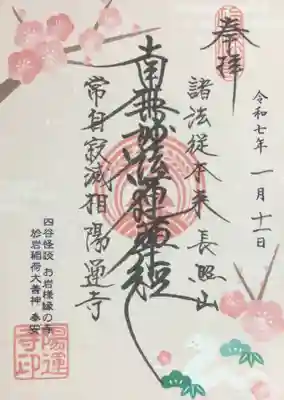 奉拝
令和七年 一月十二日
諸法従本来 長照山
南無妙法蓮華経
常自寂滅相 陽運寺
四谷怪談 お岩様縁の寺
於岩稲荷大善神 奉安
陽運
寺印